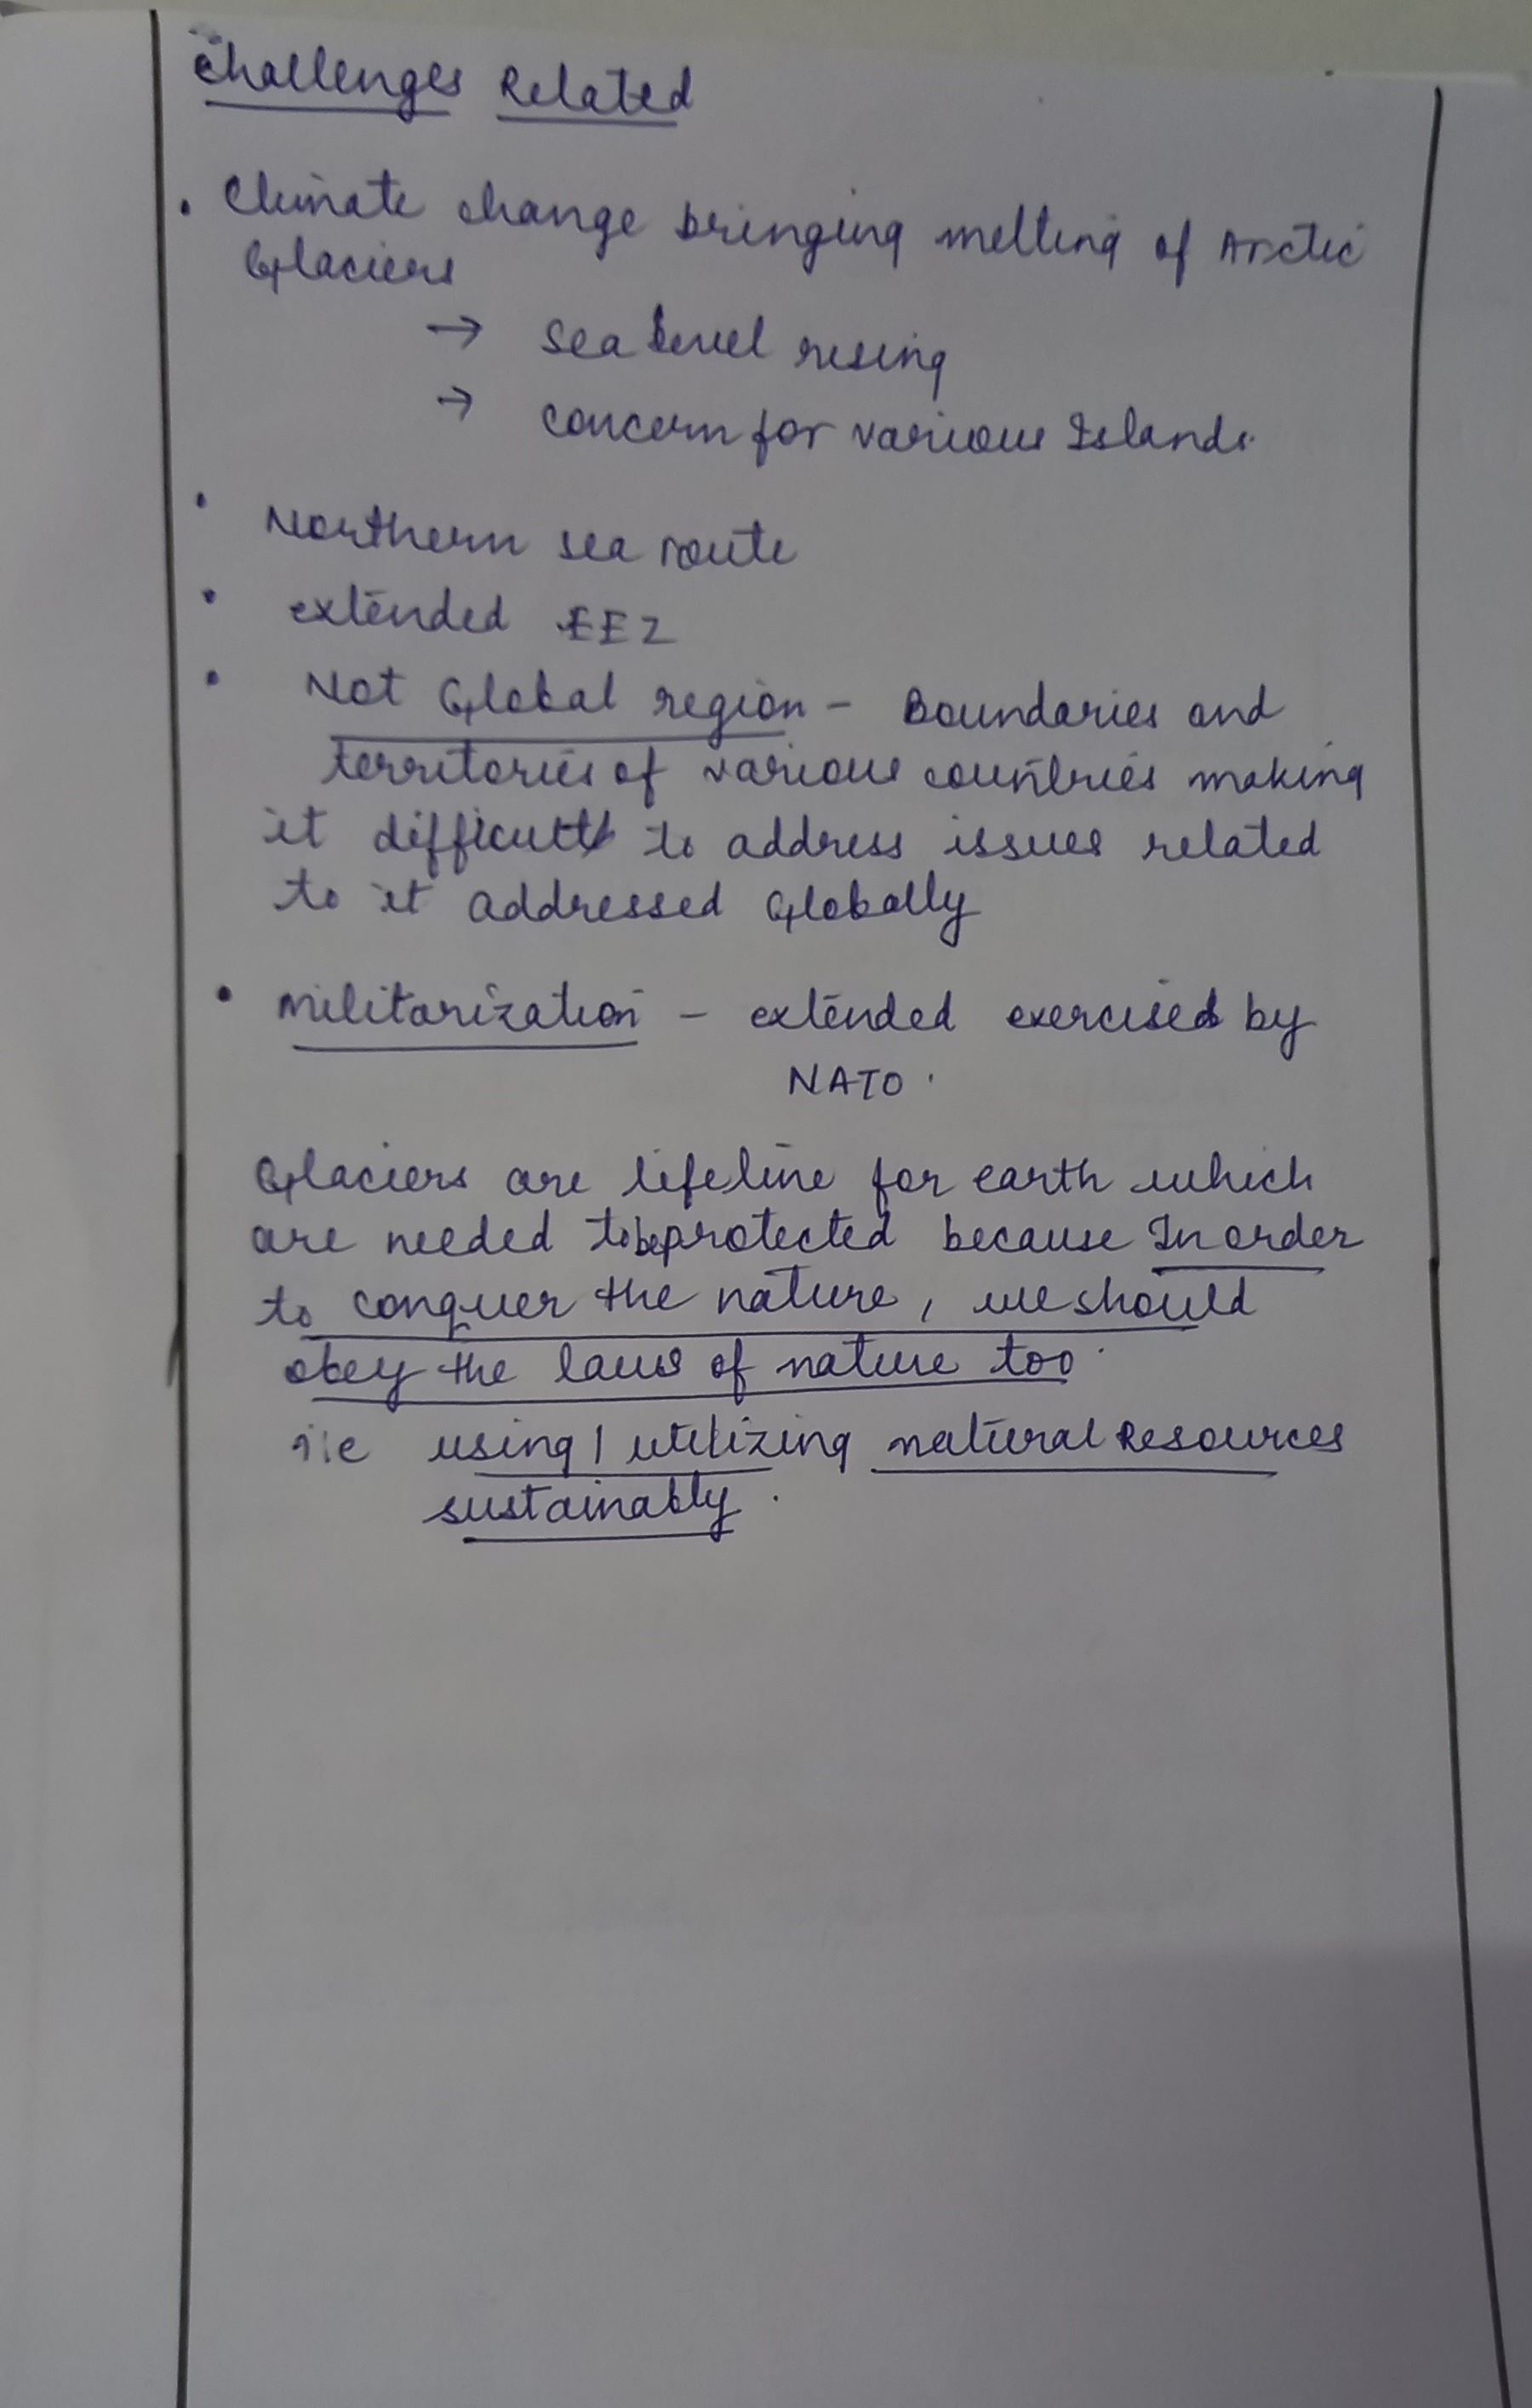 Challenges Related
• Climate change bringing melting of Arctic
Glaciers
→ Sea level rising
→ concern for various Islands.
• Northern sea route
• extended EEZ
• Not Global region - Boundaries and
territories of various countries making
it difficult to address issues related
to it addressed Globally
• Militarization - extended exercised by
NATO.
Glaciers are lifeline for earth which
are needed to be protected because In order
to conquer the nature, we should
obey the laws of nature too.
i.e using / utilizing natural Resources
sustainably.